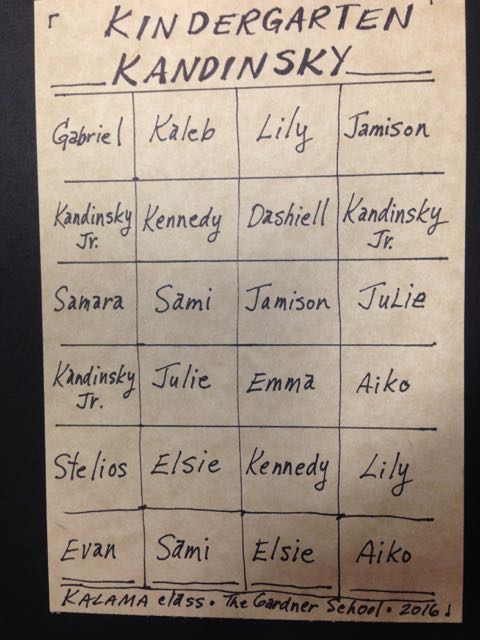 KINDERGARTEN
KANDINSKY
Gabriel Kaleb Lily Jamison
Kandinsky Jr. Kennedy Dashiell Kandinsky Jr.
Samara Sami Jamison JuLiE
Kandinsky Jr. Julie Emma Aiko
Stelios Elsie Kennedy Lily
Evan Sami Elsie Aiko
KALAMA class • The Gardner School • 2016